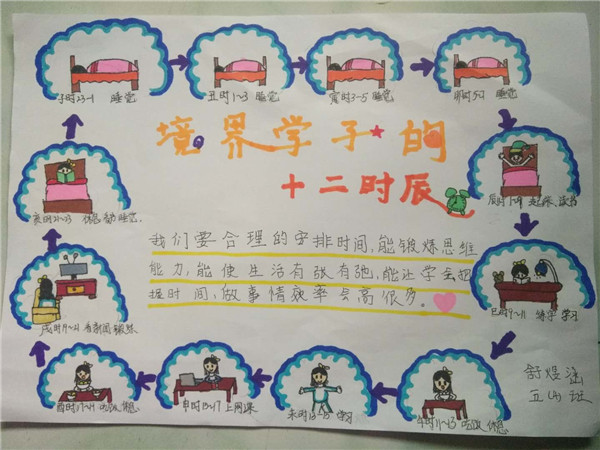 子时23~1 睡觉
丑时1~3 睡觉
寅时3~5 睡觉
卯时5~7 睡觉
境界学子的
十二时辰
辰时7~9 起床、读书
亥时21~23 休息 睡觉
我们要合理的安排时间,能锻炼思维
能力,能使生活有张有弛,能让学会把
握时间,做事情效率会高很多。
巳时9~11 练字 学习
戌时19~21 看新闻
舒煜涵
五(4)班
酉时17~19 吃饭、休息
申时15~17 上网课
未时13~15 学习
午时11~13 吃饭、休息